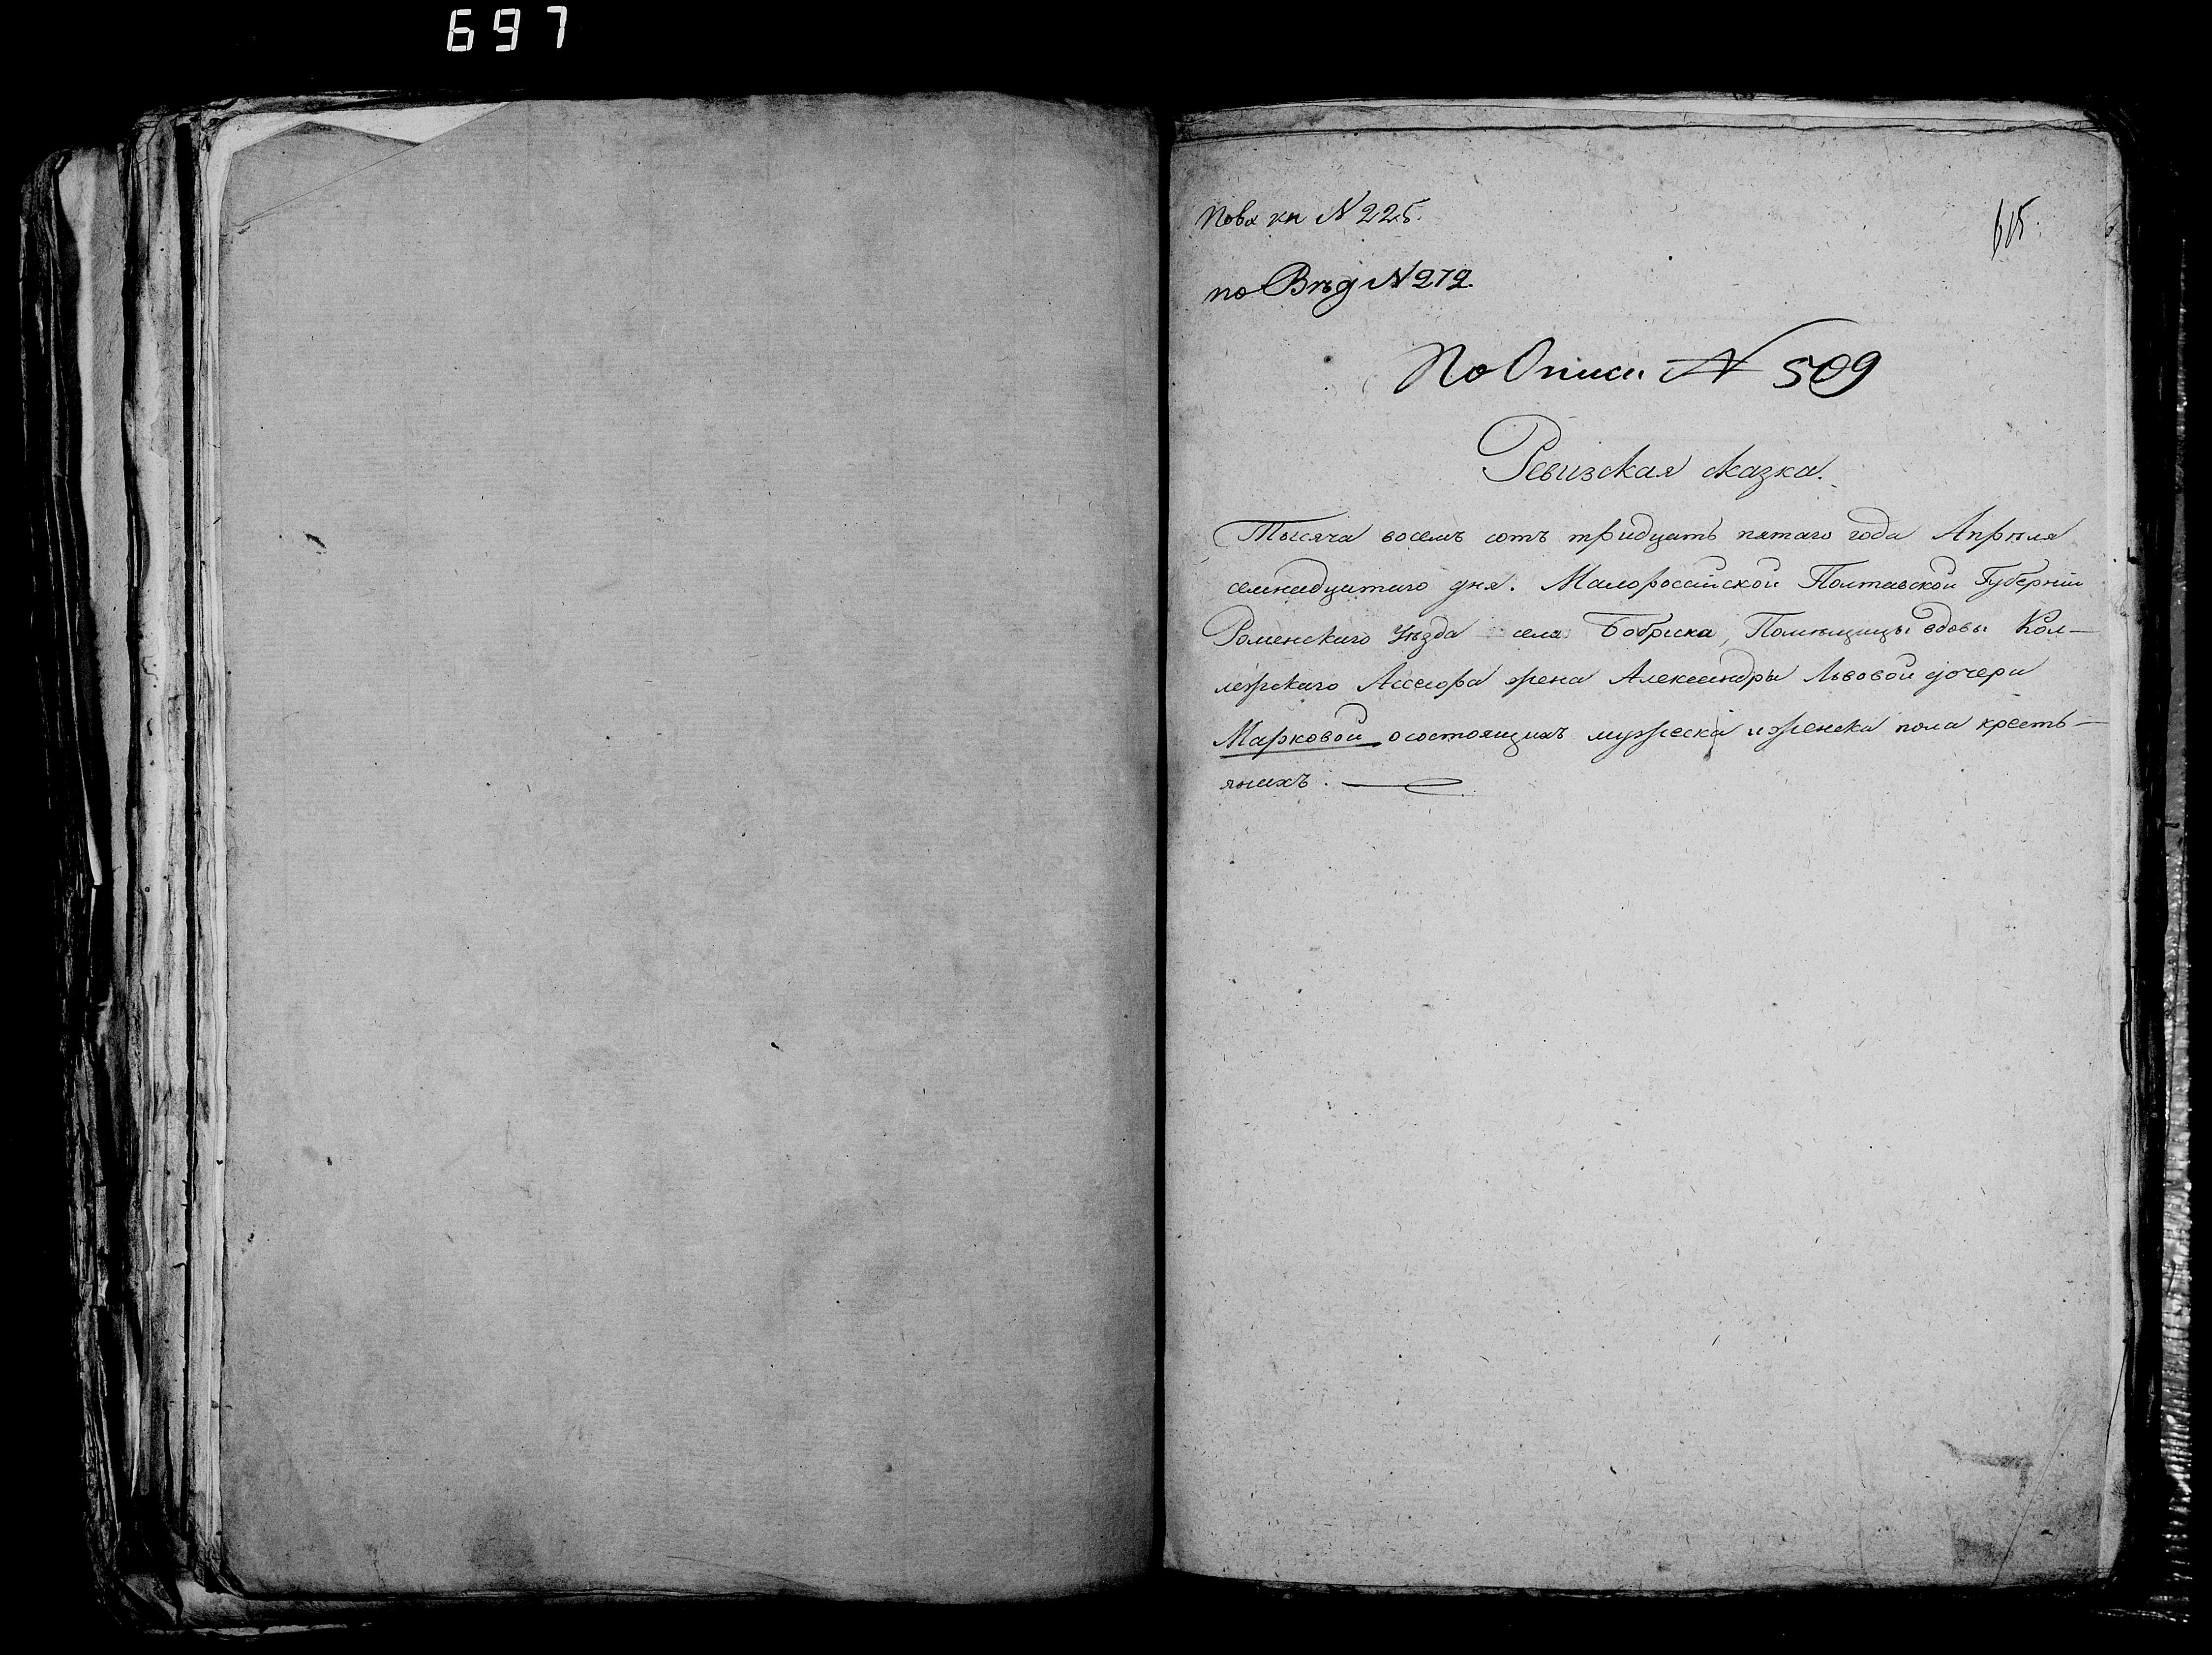 697
По вх кн N 225.
615.
по Вѣд N 272.
По Описи N 509
Ревизская сказка.
Тысяча восемъ сотъ тридцать пятаго года Апрѣля
семнадцатаго дня. Малоросийской Полтавской Губернии
Роменскаго Уѣзда села Бобрика, Помѣщицы вдовы Кол-
лежскаго Ассесора жена Александры Львовой дочери
Марковой о состоящихъ мужеска и женска пола кресть-
янихъ.